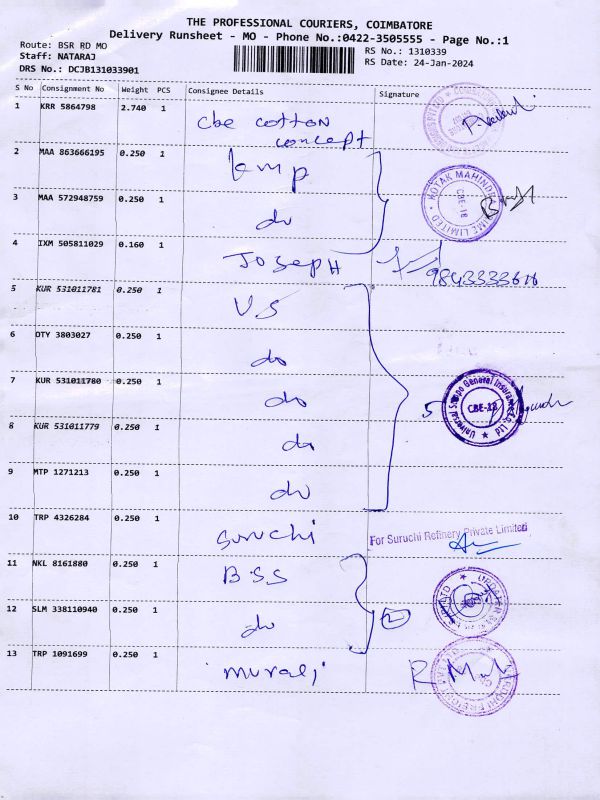 THE PROFESSIONAL COURIERS, COIMBATORE
Delivery Runsheet - MO - Phone No.:0422-3505555 - Page No.:1
Route: BSR RD MO
Staff: NATARAJ
DRS No.: DCJB131033901
RS No.: 1310339
RS Date: 24-Jan-2024
S No Consignment No Weight PCS Consignee Details Signature
1 KRR 5864798 2.740 1 Cbe cotton concept
2 MAA 863666195 0.250 1 kmp
3 MAA 572948759 0.250 1 do
KOTAK MAHINDRA PRIME LIMITED CBE-18
4 IXM 505811029 0.160 1 Joseph
5 KUR 531011781 0.250 1 U.S
6 OTY 3803027 0.250 1 do
7 KUR 531011780 0.250 1 do
5 Universal Sompo General Insurance Co. Ltd CBE-18
8 KUR 531011779 0.250 1 do
9 MTP 1271213 0.250 1 do
10 TRP 4326284 0.250 1 Suruchi
For Suruchi Refinery Private Limited
11 NKL 8161880 0.250 1 BSS
12 SLM 338110940 0.250 1 do 2
13 TRP 1091699 0.250 1 murali